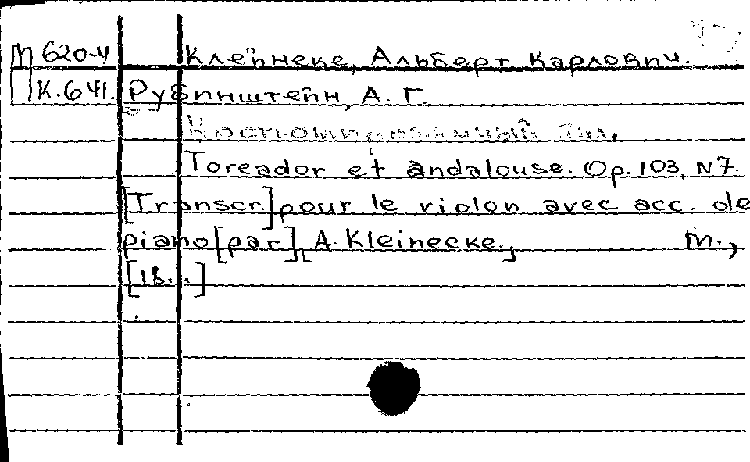 М 620-4 Клейнеке, Альберт Карлович.
К.641. Рубинштейн, А. Г.
Костюмированный бал.
Toreador et andalouse. Op. 103, N7.
[Transcr.] pour le violon avec acc. de
piano [par] A. Kleinecke., М.,
[18..]